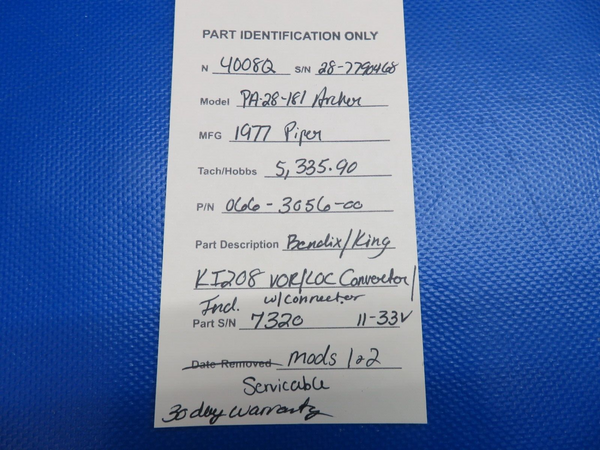 PART IDENTIFICATION ONLY
N 4008Q S/N 28-7790468
Model PA-28-181 Archer
MFG 1977 Piper
Tach/Hobbs 5,335.90
P/N 066-3056-00
Part Description Bendix/King
KI208 VOR/LOC Converter/
Ind. w/connector
Part S/N 7320 11-33V
Date Removed Mods 1+2
Servicable
30 day warranty